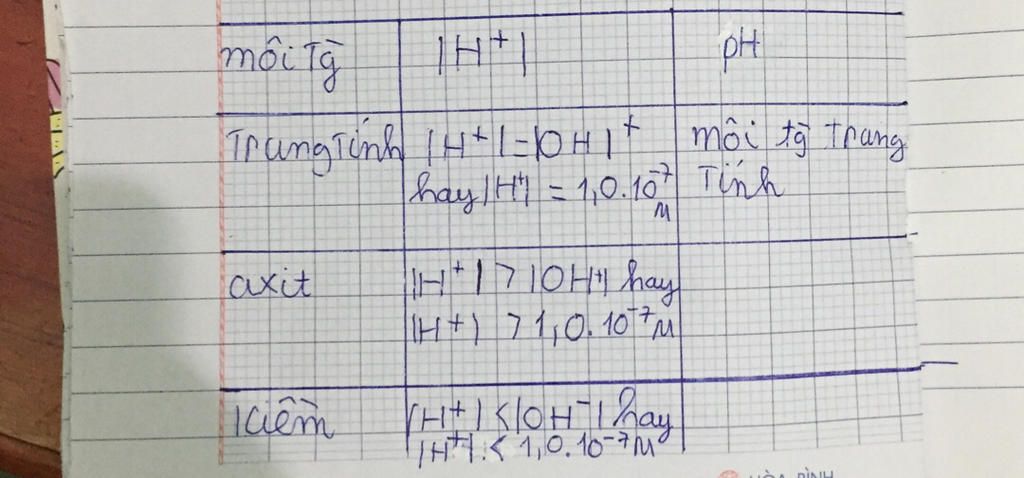 môi Tg̀ |H⁺| pH
Trung Tính |H⁺|=|OH|⁺ môi tg̀ Trung
hay |H⁺| = 1,0.10⁻⁷ Tính
M
axit |H⁺| > |OH⁺| hay
|H⁺) > 1,0.10⁻⁷M
kiềm |H⁺| < |OH⁻| hay
|H⁺| < 1,0.10⁻⁷M